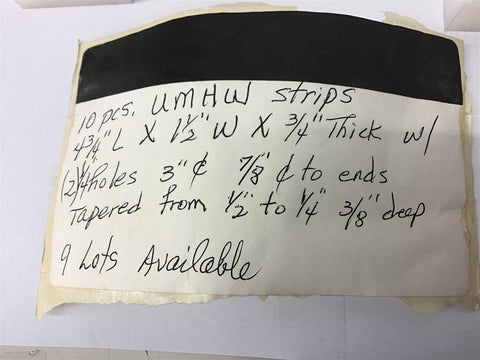 10 pcs. UMHW strips
4 3/4" L X 1 1/2" W X 3/4" Thick w/
(2) 1/4 holes 3" ¢ 7/8" ¢ to ends
Tapered from 1/2" to 1/4" 3/8" deep
9 Lots Available